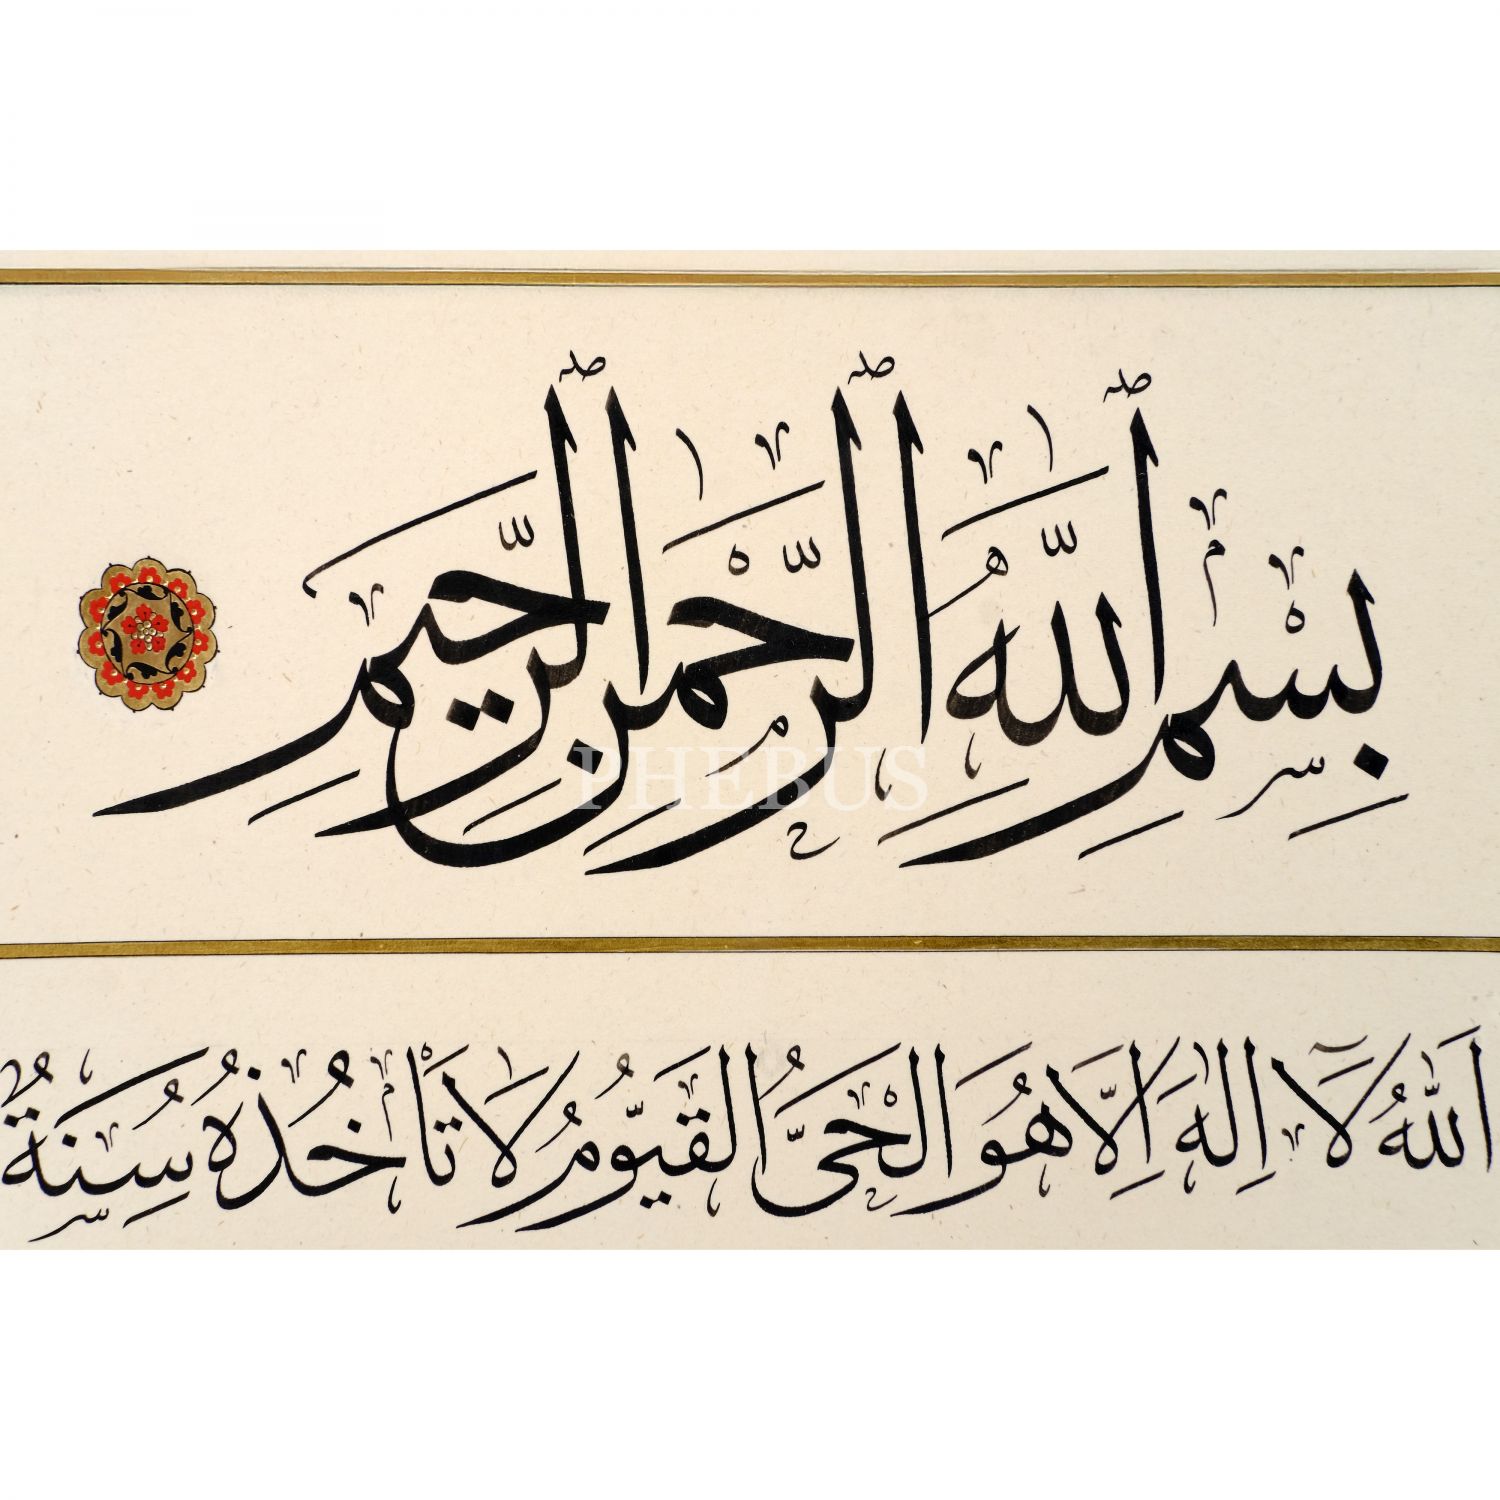 بِسْمِ ٱللَّهِ ٱلرَّحْمٰنِ ٱلرَّحِيمِ
PHEBUS
اَللّٰهُ لَٓا اِلٰهَ اِلَّا هُوَ الْحَىُّ الْقَيُّومُ لَا تَأْخُذُهُ سِنَةٌ